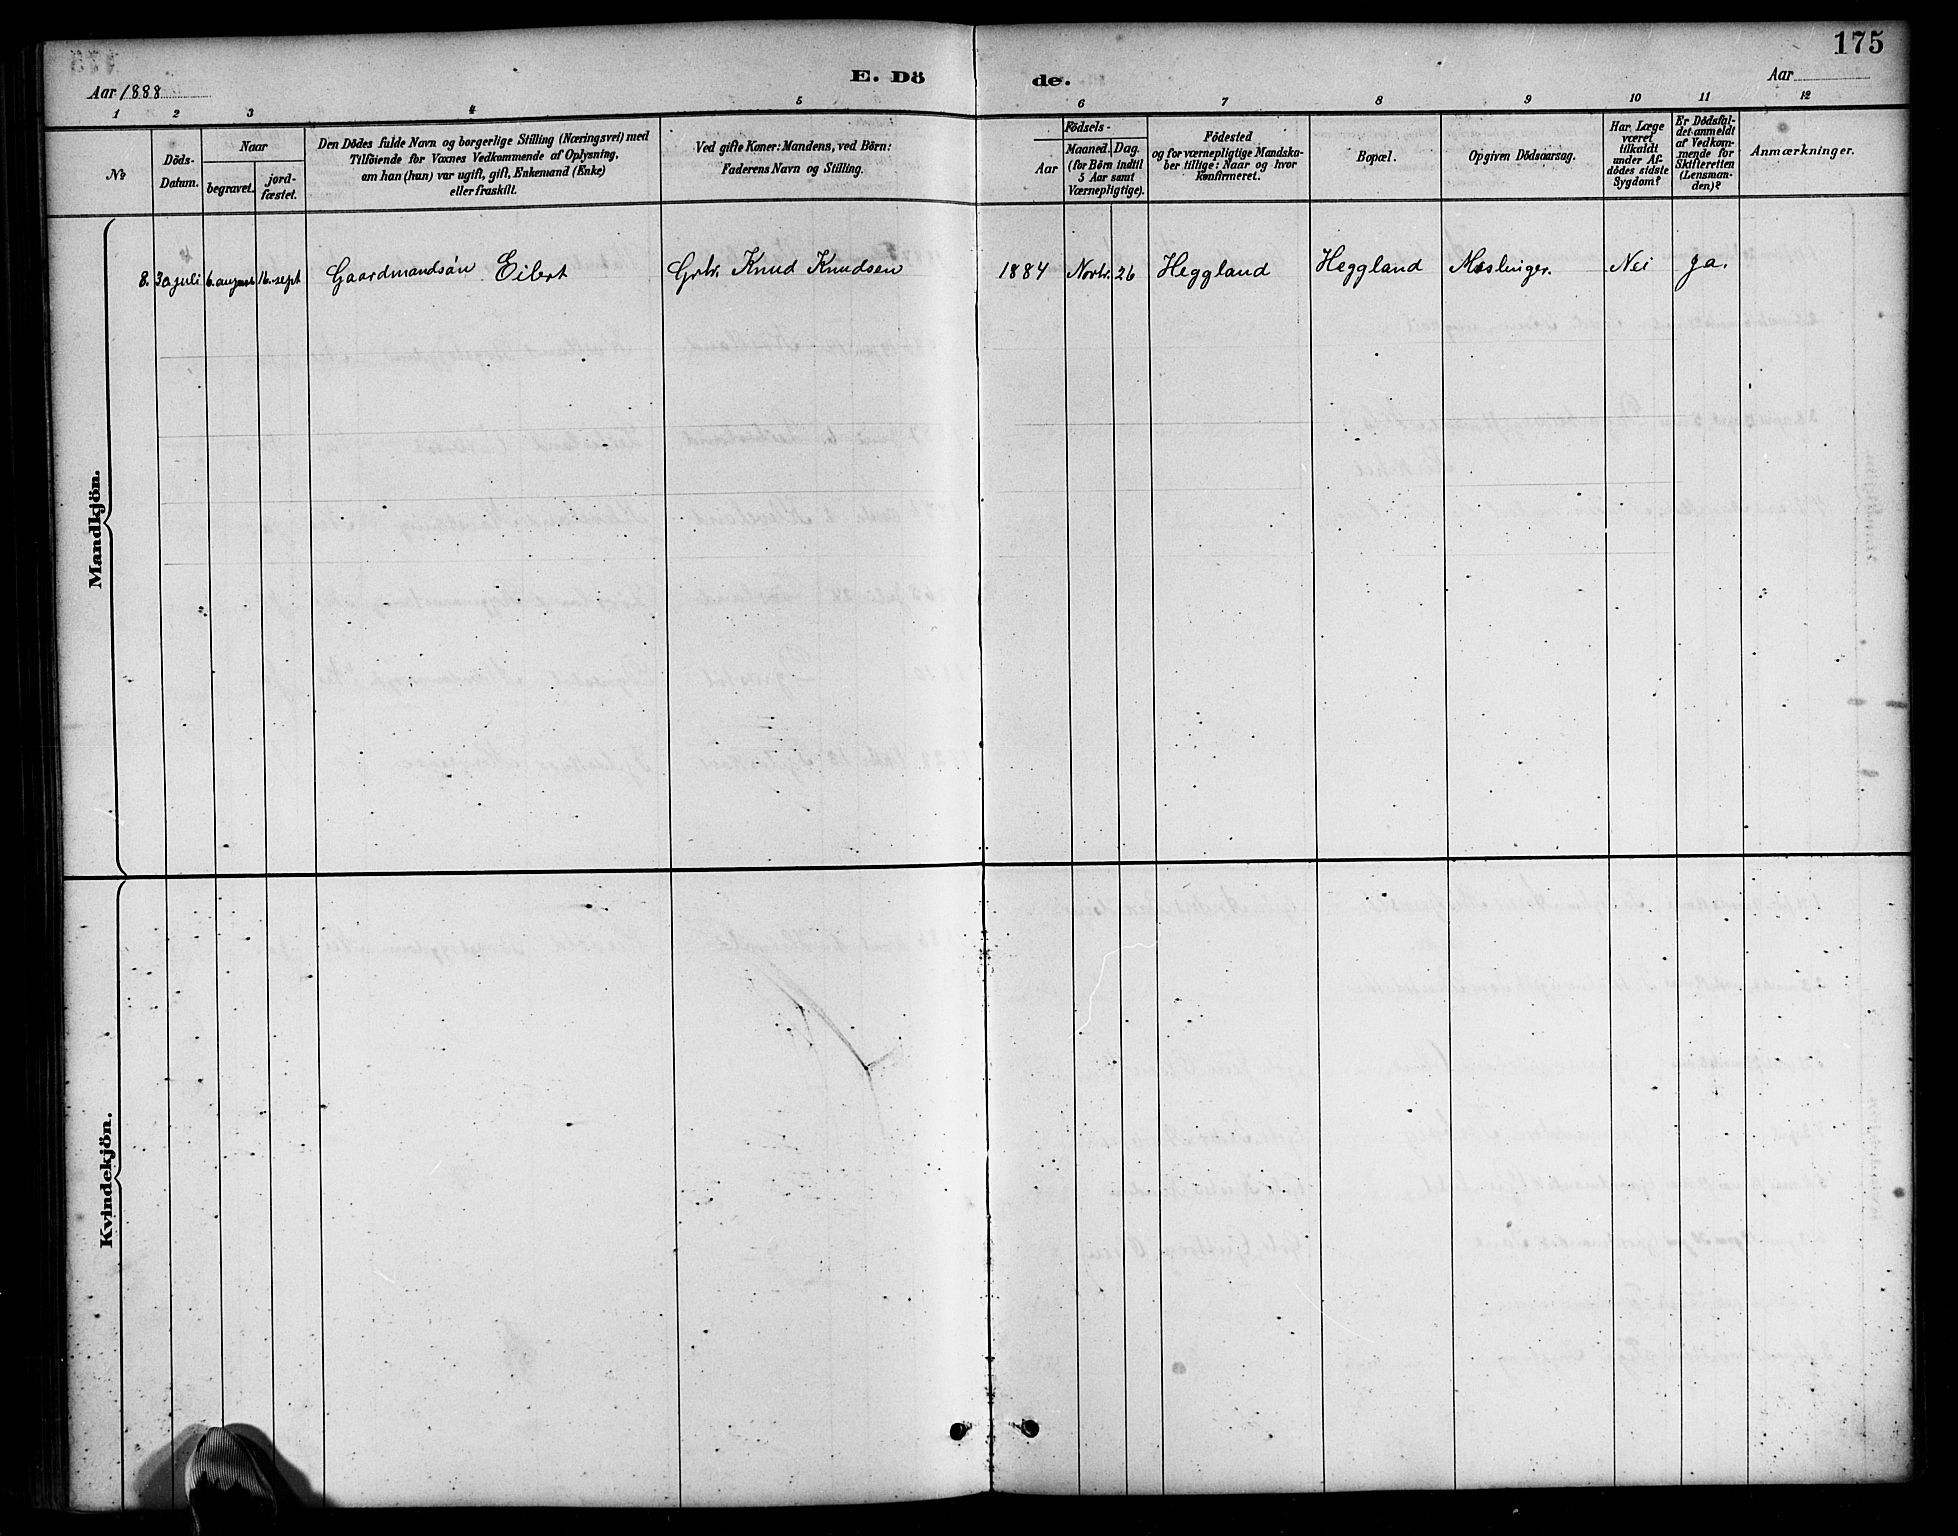 175
E. Dö de.
Aar 1888
Aar
1 2 3 4 5 6 7 8 9 10 11 12
No
Döds-
Datum.
Naar
begravet.
jord-
fæstet.
Den Dödes fulde Navn og borgerlige Stilling (Næringsvei) med
Tilföiende for Voxnes Vedkommende af Oplysning,
om han (hun) var ugift, gift, Enkemand (Enke)
eller fraskilt.
Ved gifte Koner: Mandens, ved Börn:
Faderens Navn og Stilling.
Födsels-
Aar
Maaned. Dag.
(for Börn indtil
5 Aar samt
Værnepligtige).
Födested
og for værnepligtige Mandska-
ber tillige: Naar og hvor
konfirmeret.
Bopæl.
Opgiven Dödsaarsag.
Har Læge
været
tilkaldt
under Af-
dödes sidste
Sygdom?
Er Dödsfal-
det anmeldt
af Vedkom-
mende for
Skifteretten
(Lensman-
den)?
Anmærkninger.
Mandkjön.
8. 30 juli 6. august 16. sept Gaardmandsøn Eilert Grbr. Knud Knudsen 1884 Novbr. 26 Heggland Heggland Meslinger. Nei ja.
Kvindekjön.